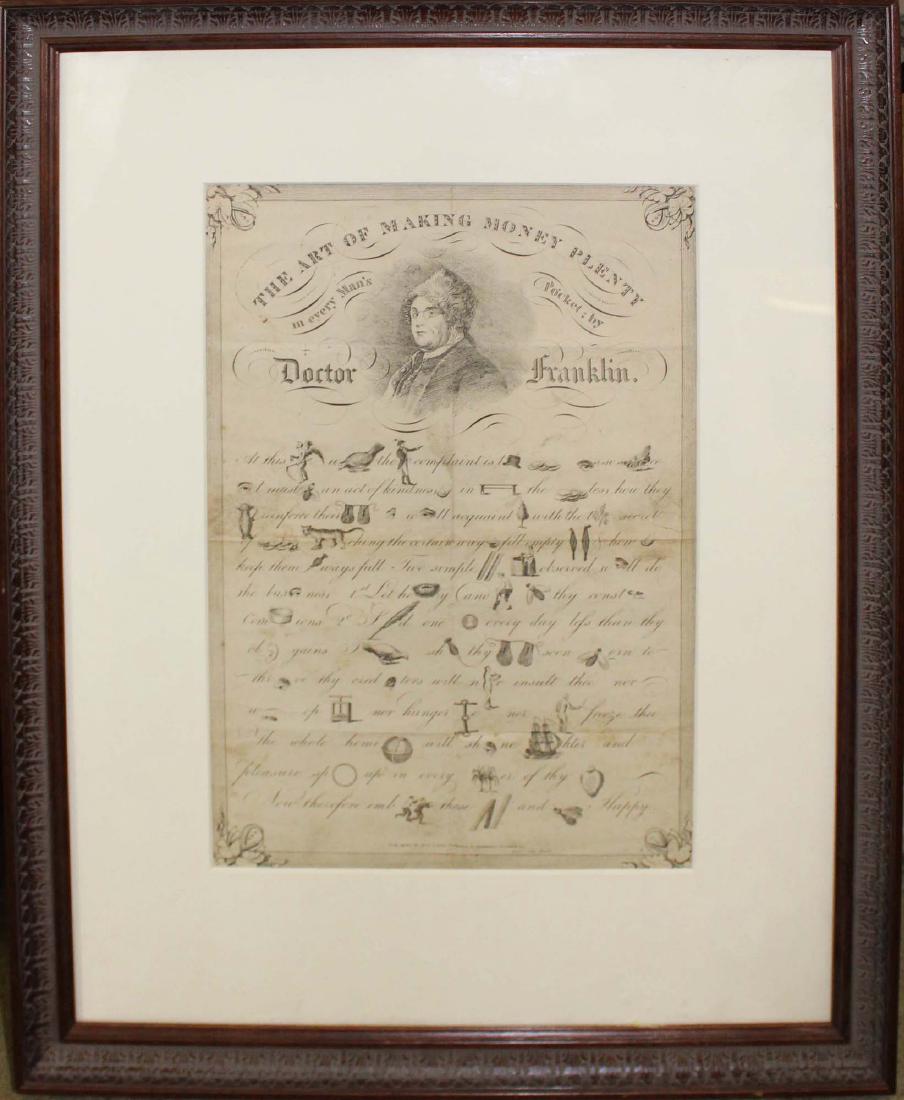 THE ART OF MAKING MONEY PLENTY
in every Man's Pocket; by
Doctor Franklin.
At this the complaint is
t must an act of kindness in the less how they
reinforce their w ll acquaint with the t secret
of ching the certain way fill empty & how
keep them ways full Two simple observed w ll do
the bus ness 1st Let ho y (and thy const
Com ions 2d S t one every day less than thy
ob gains S sh thy soon orn to
the ve thy cred tors will n insult thee nor
w op nor hunger e nor freeze thee
the whole hemi will sh ne hter and
pleasure sp up in every er of thy
Now therefore emb e these and Happy